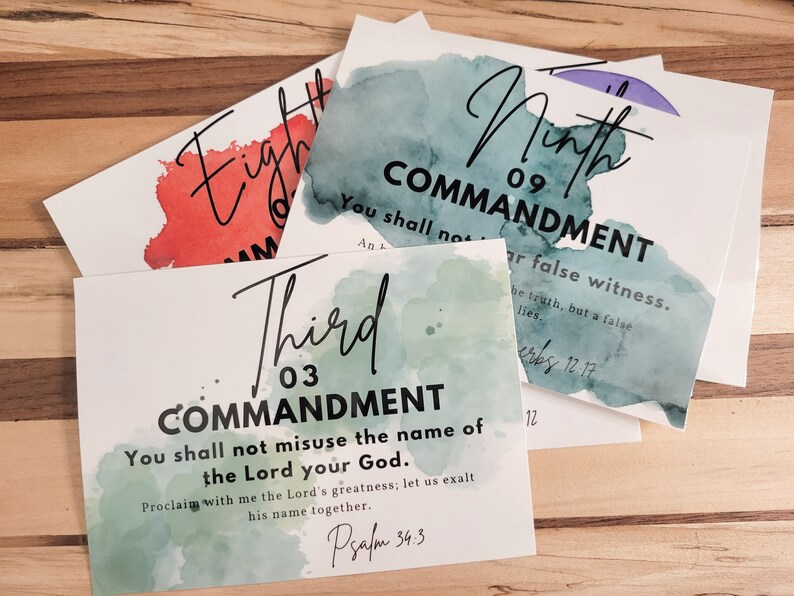 Eighth
Ninth
09
COMMANDMENT
You shall not bear false witness.
the truth, but a false
lies.
12:17
12
Third
03
COMMANDMENT
You shall not misuse the name of
the Lord your God.
Proclaim with me the Lord's greatness; let us exalt
his name together.
Psalm 34:3